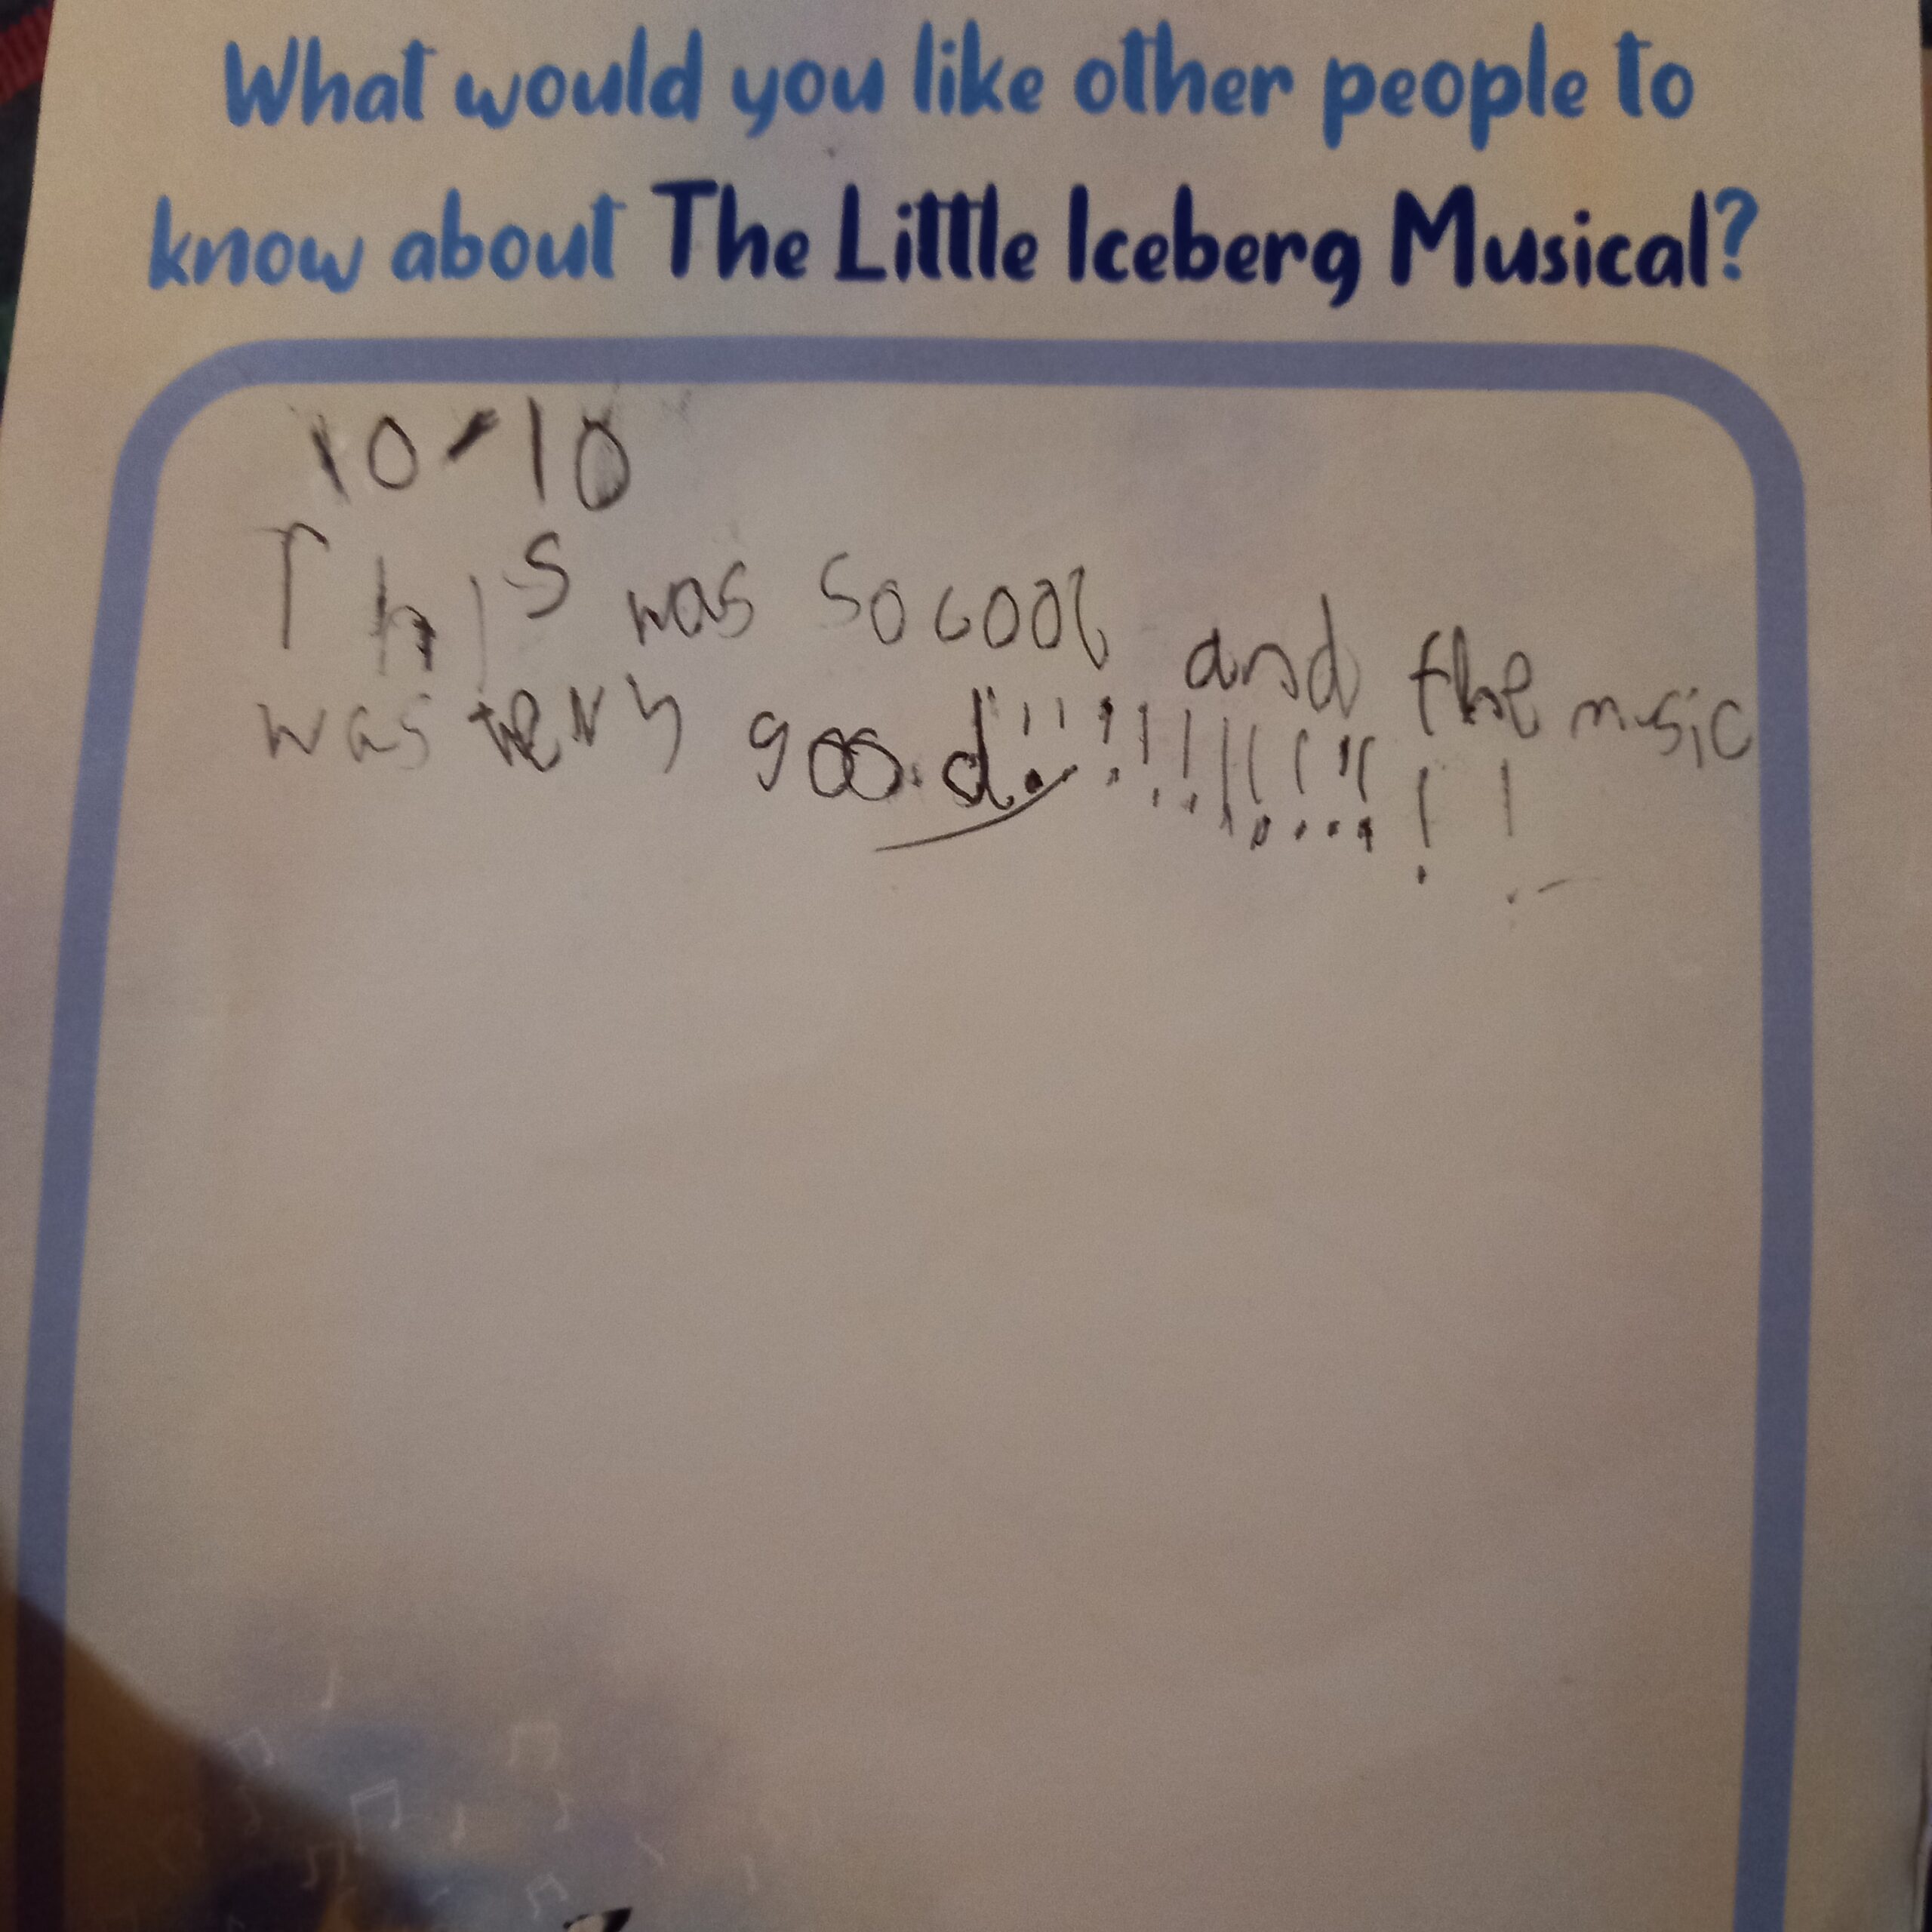 What would you like other people to
know about The Little Iceberg Musical?
10-10
This was so cool and the music
was very good!!!!!!!!!!!!!